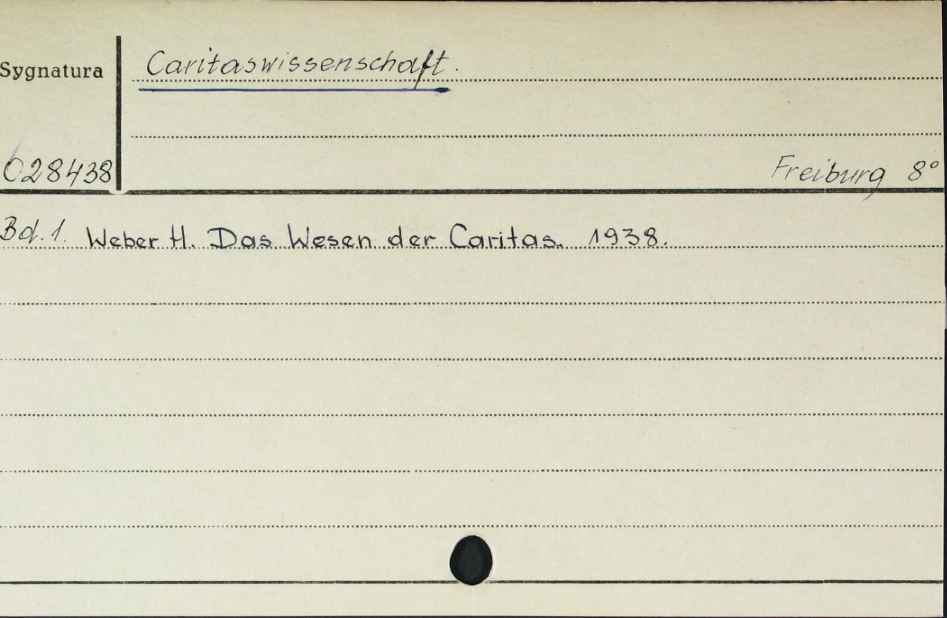 Sygnatura Caritaswissenschaft.
028438 Freiburg 8°
Bd. 1. Weber H. Das Wesen der Caritas. 1938.